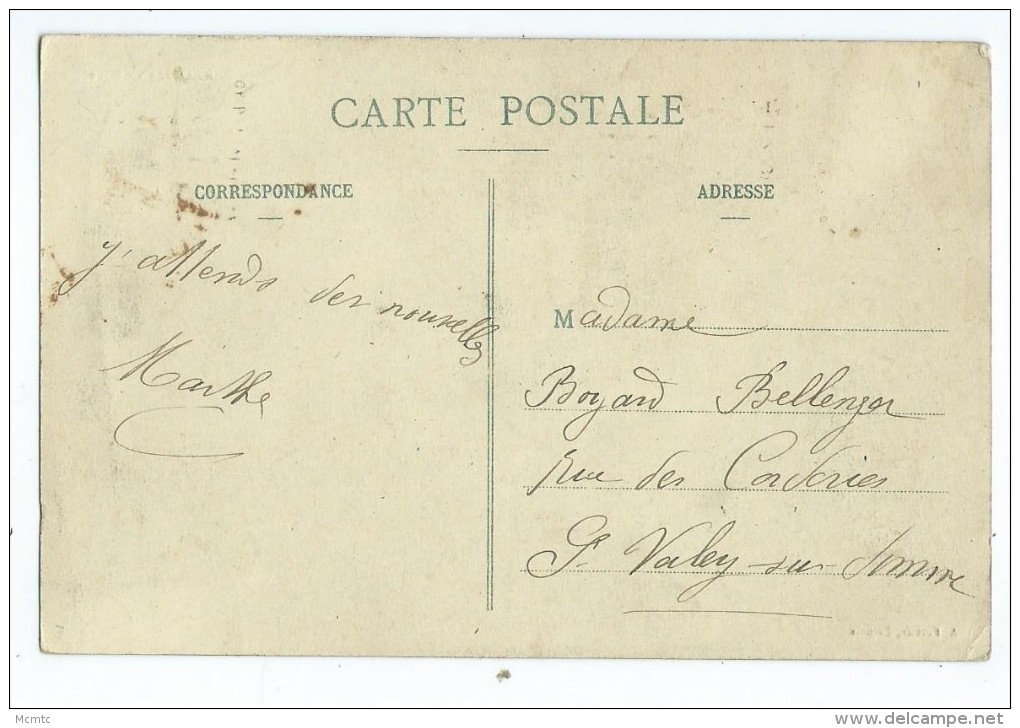 CARTE POSTALE
CORRESPONDANCE
ADRESSE
J'attends des nouvelles
Marthe
Madame
Boyard Bellenger
rue des Corderies
St Valey-sur-Somme
Mcmtc
www.delcampe.net